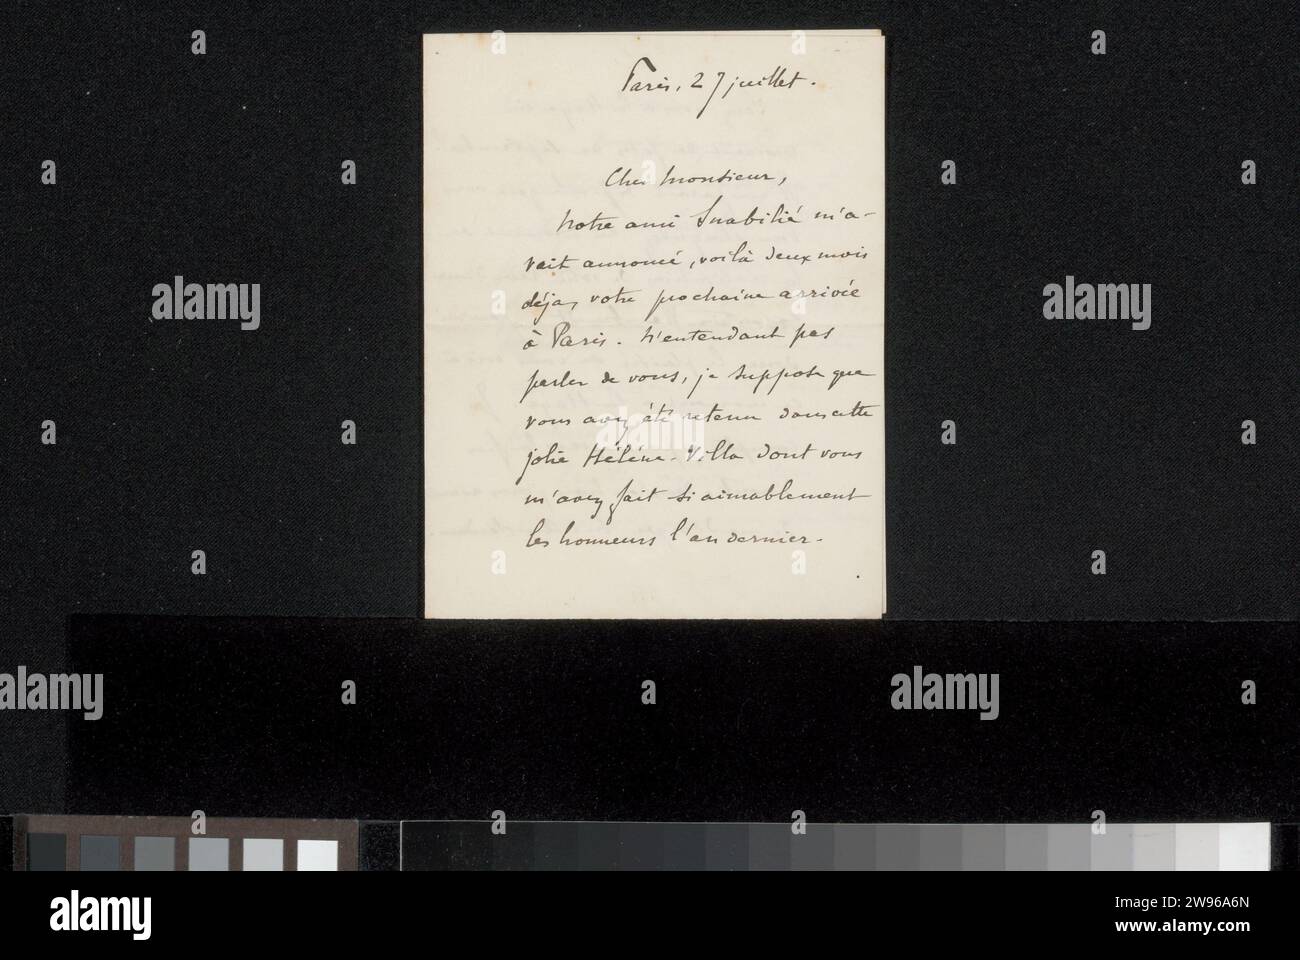 Paris, 27 juillet.
Cher Monsieur,
Notre ami m'a-
vait annoncé, voilà deux mois
déjà, votre prochaine arrivée
à Paris. N'entendant pas
parler de vous, je suppose que
vous avez été retenu dans cette
jolie Hélène-Villa dont vous
m'avez fait si aimablement
les honneurs l'an dernier.
alamy
Image ID: 2W96A6N
www.alamy.com